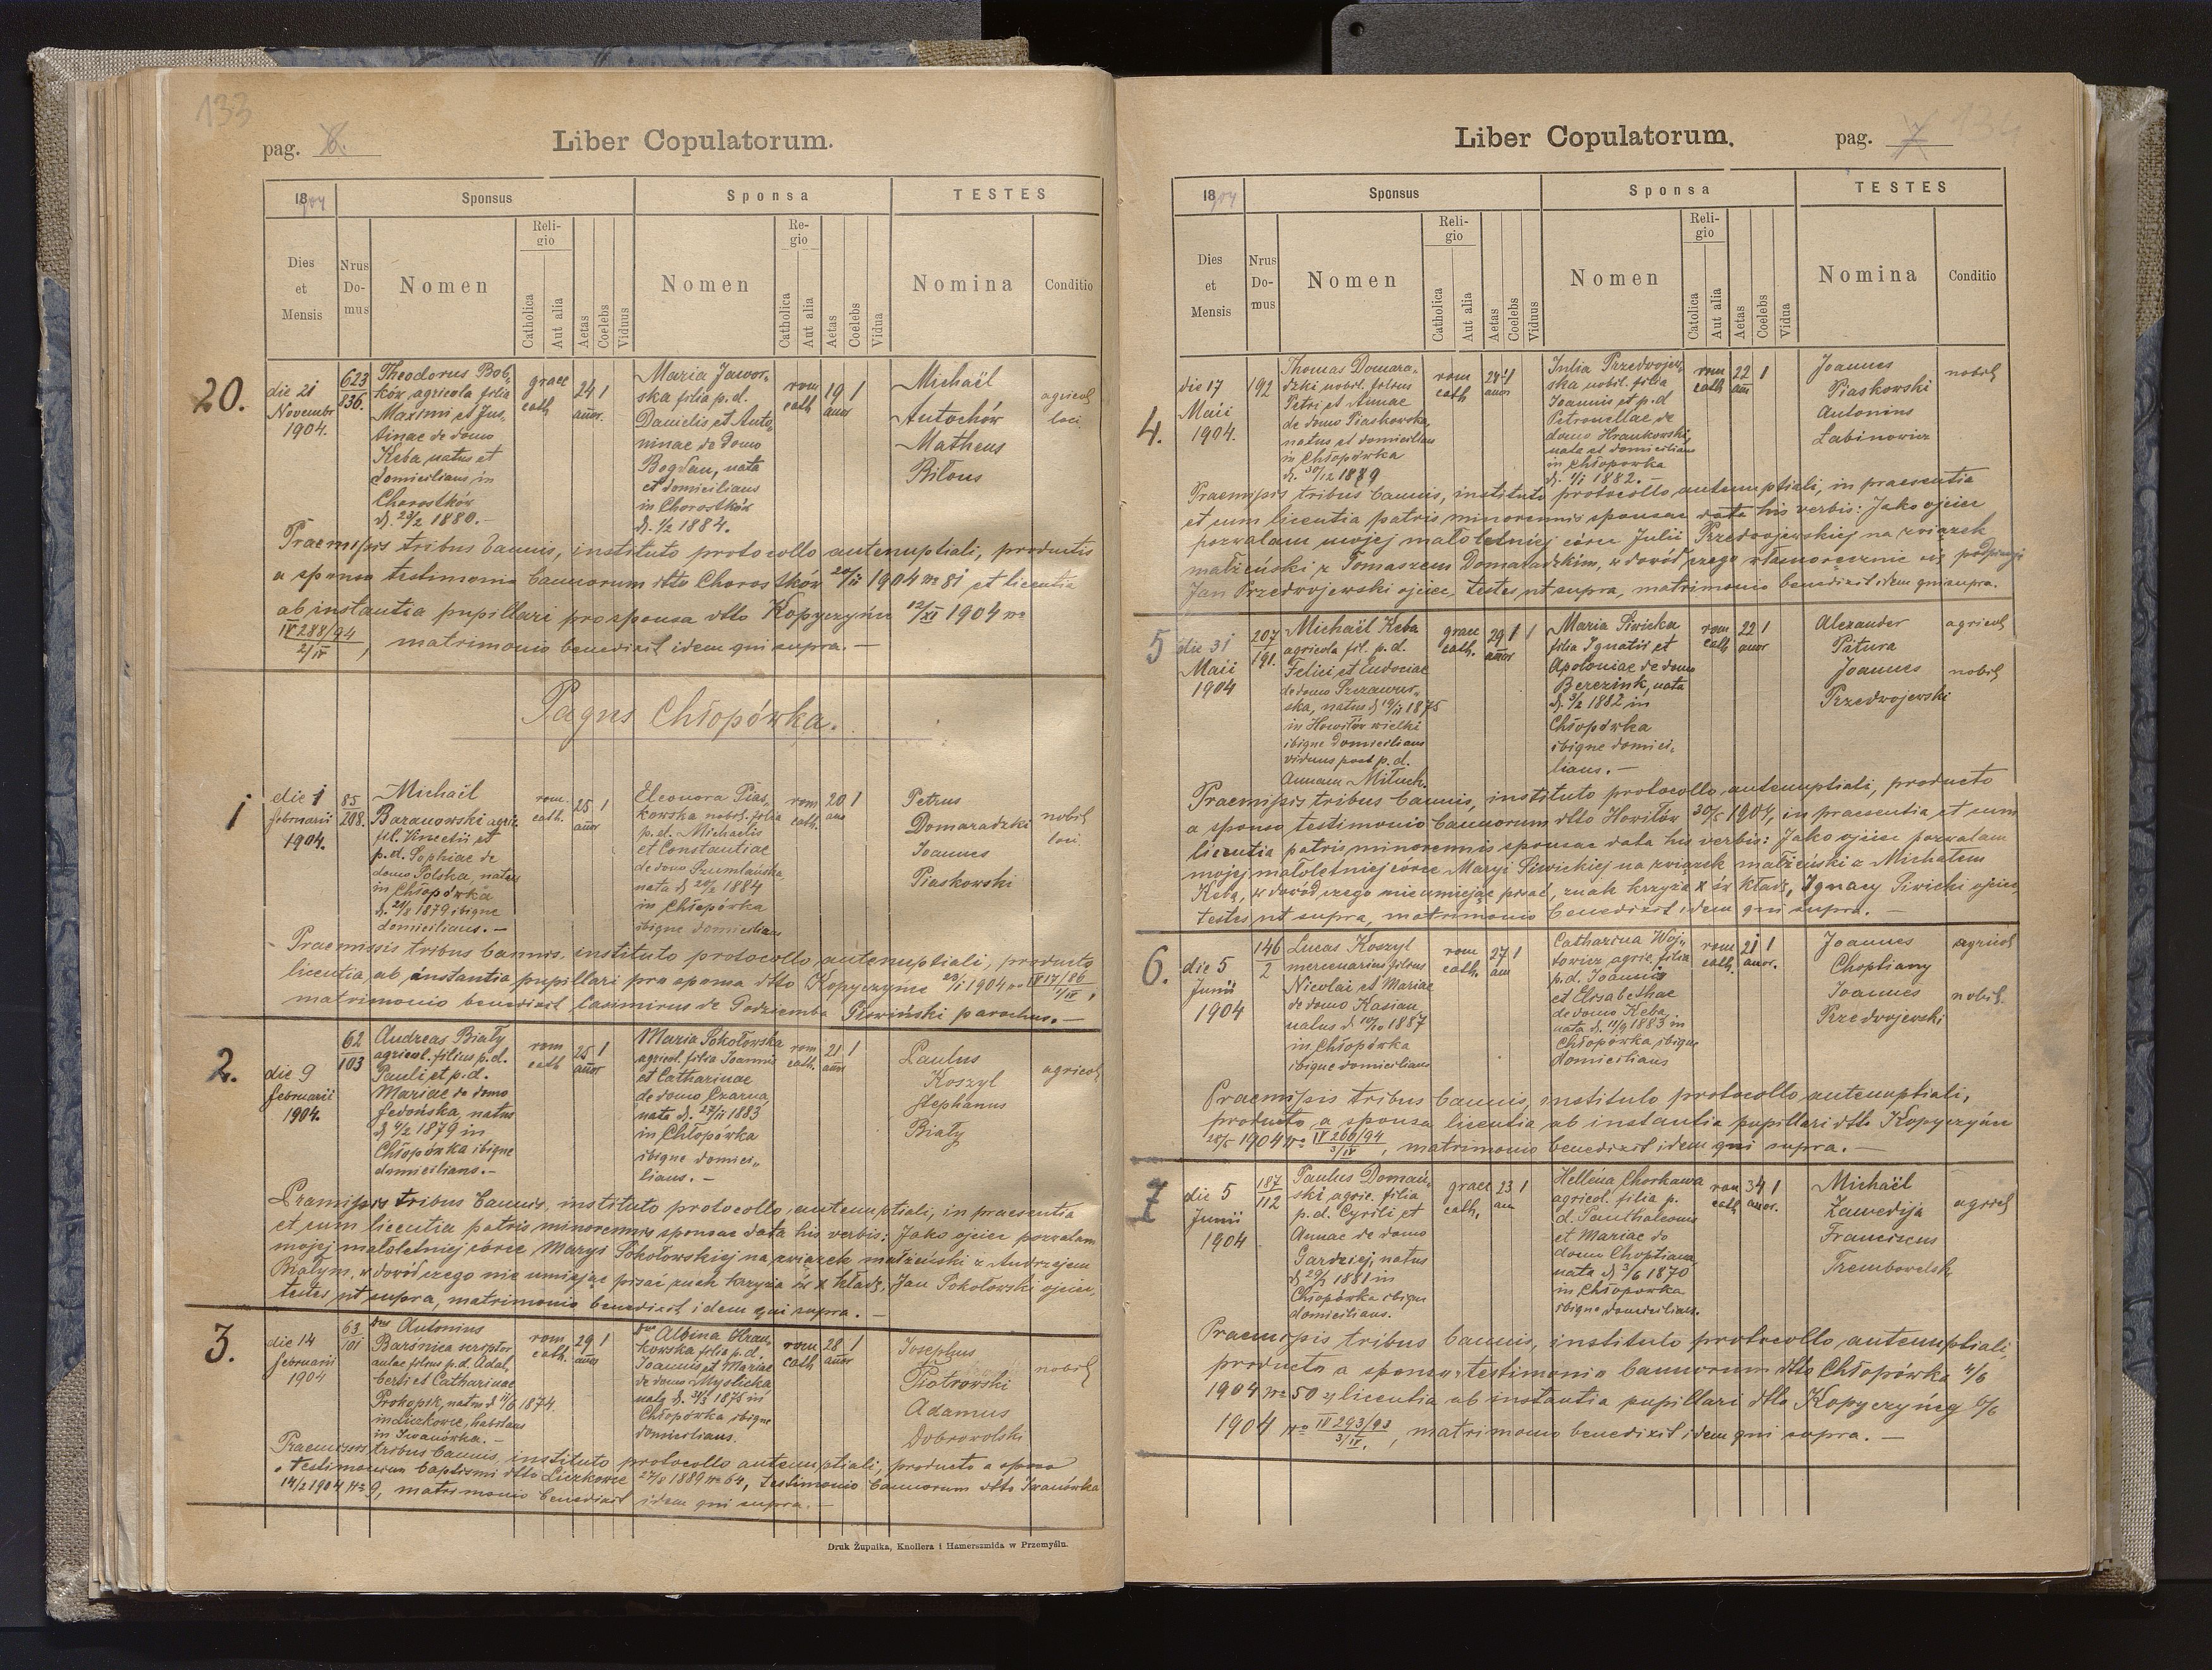 133
pag. 6.
Liber Copulatorum.
1904
Sponsus
Sponsa
TESTES
Dies et Mensis
Nrus Domus
Nomen
Religio
Catholica
Aut alia
Aetas
Coelebs
Viduus
Nomen
Religio
Catholica
Aut alia
Aetas
Coelebs
Vidua
Nomina
Conditio
20.
die 21
Novembr
1904.
623
836.
Theodorus Bob-
ków, agricola filius
Maximi et Jus-
tinae de domo
Keba, natus et
domicilians in
Chorostków
d. 23/2 1880.-
graec
cath
24
anor.
1
Maria Jawor-
ska filia p.d.
Danielis et Anto-
ninae de domo
Bogdan, nata
et domicilians
in Chorostków
d. 1/2 1884.
rom
cath
19
anor
1
Michaël
Autochów
Matheus
Biłous
agricol
loci
Praemissis tribus bannis, instituto protocollo antenuptiali, productis
a sponso testimonio bannorum dtto Chorostków 1904 no 81 et licentia
ab instantia pupillari pro sponsa dtto Kopyczyńce 12/XI 1904 no
IV 288/94
2/IV, matrimonio benedixit idem qui supra.-
Pagus Chłopówka.
1
die 1
februarii
1904.
85
208.
Michaël
Baranowski agric.
fil. Vincetii et
p.d. Sophiae de
domo Polska, natus
in Chłopówka
d. 21/8 1879 ibique
domicilians.-
rom.
cath.
25
anor
1
Eleonora Pias-
kowska nobil. filia
p.d. Michaelis
et Constantiae
de domo Szumlańska
nata d. 1884
in Chłopówka
ibique domicilians
rom
cath.
20
ano
1
Petrus
Domaradzki
Joannes
Piaskowski
nobil
loci
Praemissis tribus bannis, instituto protocollo antenuptiali, producto
licentia ab instantia pupillari pro sponsa dtto Kopyczyńce 1904 no IV 17/86
matrimonio benedixit Casimirus de Godziemba Głowiński parochus.-
2.
die 9
februarii
1904.
62
103
Andreas Biały
agricol. filius p.d.
Pauli et p.d.
Mariae de domo
Fedońska, natus
d 4/2 1879 in
Chłopówka ibique
domicilians.-
rom
cath
25
anor
1
Maria Sokołowska
agricol. filia Joannis
et Catharinae
de domo Czarna
nata d. 1883
in Chłopówka
ibique domici-
lians.-
rom
cath.
21
anor
1
Paulus
Koszyl
Stephanus
Biały
agricol
Pramissis tribus bannis, instituto protocollo, antenuptiali, in praesentia
et cum licentia patris minorennis sponsae data his verbis: Jako ojciec pozwalam
mojej małoletniej córce Maryi Sokołowskiej na związek małżeński z Andrzejem
Białym, w dowód czego nie umiejąc pisać znak krzyża św x kładę. Jan Sokołowski ojciec,
testes ut supra, matrimonio benedixit idem qui supra.-
3.
die 14
februarii
1904
63
101
Antonius
Barśnica scriptor
aulae filius p.d. Adal-
berti et Catharinae
Prokopik, natus d 1874
in Liczkowce, habitans
in Iwanówka.-
rom
cath.
29
anor
1
Albina Hrau-
kowska filia p.d.
Joannis et Mariae
de domo Myslicka
nata d. 1875 in
Chłopówka, ibique
domicilians.
rom
cath
28
anor
1
Josephus
Piotrowski
Adamus
Dobrowolski
nobil
Praemissis tribus bannis, instituto protocollo antenuptiali, producto a sponso
testimonium baptismi dtto Liczkowce 27/8 1889 no 64, testimonio bannorum dtto Iwanówka
14/2 1904 no 9, matrimonio benedixit idem qui supra.-
Druk Żupnika, Knollera i Hamerszmida w Przemyślu.
Liber Copulatorum.
pag. 7
134
1904
Sponsus
Sponsa
TESTES
Dies et Mensis
Nrus Domus
Nomen
Religio
Catholica
Aut alia
Aetas
Coelebs
Viduus
Nomen
Religio
Catolica
Aut alia
Aetas
Coelebs
Vidua
Nomina
Conditio
4.
die 17
Maii
1904.
192
Thomas Domara-
dzki nobil. filius
Petri et Annae
de domo Piaskowska,
natus et domicilians
in Chłopówka
d. 30/12 1879
rom
cath
24
anor
1
Julia Przedwojew-
ska nobil. filia
Joannis et p.d
Petronellae de
domo Hraukowski,
nata et domicilians
in Chłopówka
d. 1/1 1882.-
rom
cath
22
an
1
Joannes
Piaskowski
Antonius
Łabinowicz
nobil
Praemissis tribus bannis, instituto protocollo antenuptiali, in praesentia
et cum licentia patris minorennis sponsae data his verbis: Jako ojciec
pozwalam mojej małoletniej córce Julii Przedwojewskiej na związek
małżeński z Tomaszem Domaradzkim, w dowód czego własnoręcznie się podpisuję
Jan Przedwojewski ojciec, testes ut supra, matrimonio benedixit idem qui supra.
5
die 31
Maii
1904
207
191.
Michaël Keba
agricola fil. p.d.
Felici et Eudociae
de domo Szczawur-
ska, natus d 1875
in Howiłów wielki
ibique domicilians
viduus post p.d.
Annam Miluch.
graec
cath.
29
anor
1
Maria Siwicka
filia Ignatii et
Apoloniae de domo
Berezink, nata
d. 3/2 1882 in
Chłopówka
ibique domici-
lians.-
rom
cath
22
anor
1
Alexander
Patura
Joannes
Przedwojewski
agricol
nobil
Praemissis tribus bannis, instituto protocollo antenuptiali, producto
a sponso testimonio bannorum dtto Howiłów 30/5 1904, in praesentia et cum
licentia patris minorennis sponsae data his verbis: Jako ojciec pozwalam
mojej małoletniej córce Maryi Siwickiej na związek małżeński z Michałem
Kebą, w dowód czego nie umiejąc pisać, znak krzyża x św kładę, Ignacy Siwicki ojciec,
testes ut supra, matrimonio benedixit idem qui supra.-
6.
die 5
Junii
1904
146
2
Lucas Koszyl
mercenarius filius
Nicolai et Mariae
de domo Kasian
natus d. 1887
in Chłopówka
ibique domicilians
rom
cath.
27
an
1
Catharina Woj-
towicz agric. filia
p.d. Joannis
et Elisabethae
de domo Keba,
nata d. 11/9 1883 in
Chłopówka ibique
domicilians
rom
cath.
21
anor.
1
Joannes
Choptiany
Joannes
Przedwojewski
agricol
nobil.
Praemissis tribus bannis, instituto protocollo, antenuptiali,
producto a sponsa licentia ab instantia pupillari dtto Kopyczyńce
28/5 1904 no IV 260/94
3/IV, matrimonio benedixit idem qui supra.-
7
die 5
Junii
1904
187
112
Paulus Domań-
ski agric. filia
p.d. Cyrili et
Annae de domo
Gardziej, natus
d. 1881 in
Chłopówka ibique
domicilians.
graec
cath.
23
an
1
Hellena Chorkawa
agricol. filia p.
d. Panthaleonis
et Mariae de
domo Choptiana
nata d. 3/6 1870
in Chłopówka
ibique domicilians.
rom
cath
34
anor.
1
Michaël
Zawedija
Franciscus
Trembowelski
agricol
Praemissis tribus bannis, instituto protocollo antenuptiali,
producto a sponso testimonio bannorum dtto Chłopówka 4/6
1904 no 50 licentia ab instantia pupillari dtto Kopyczyńcy
1904 no IV 293/93
3/IV., matrimonio benedixit idem qui supra.-